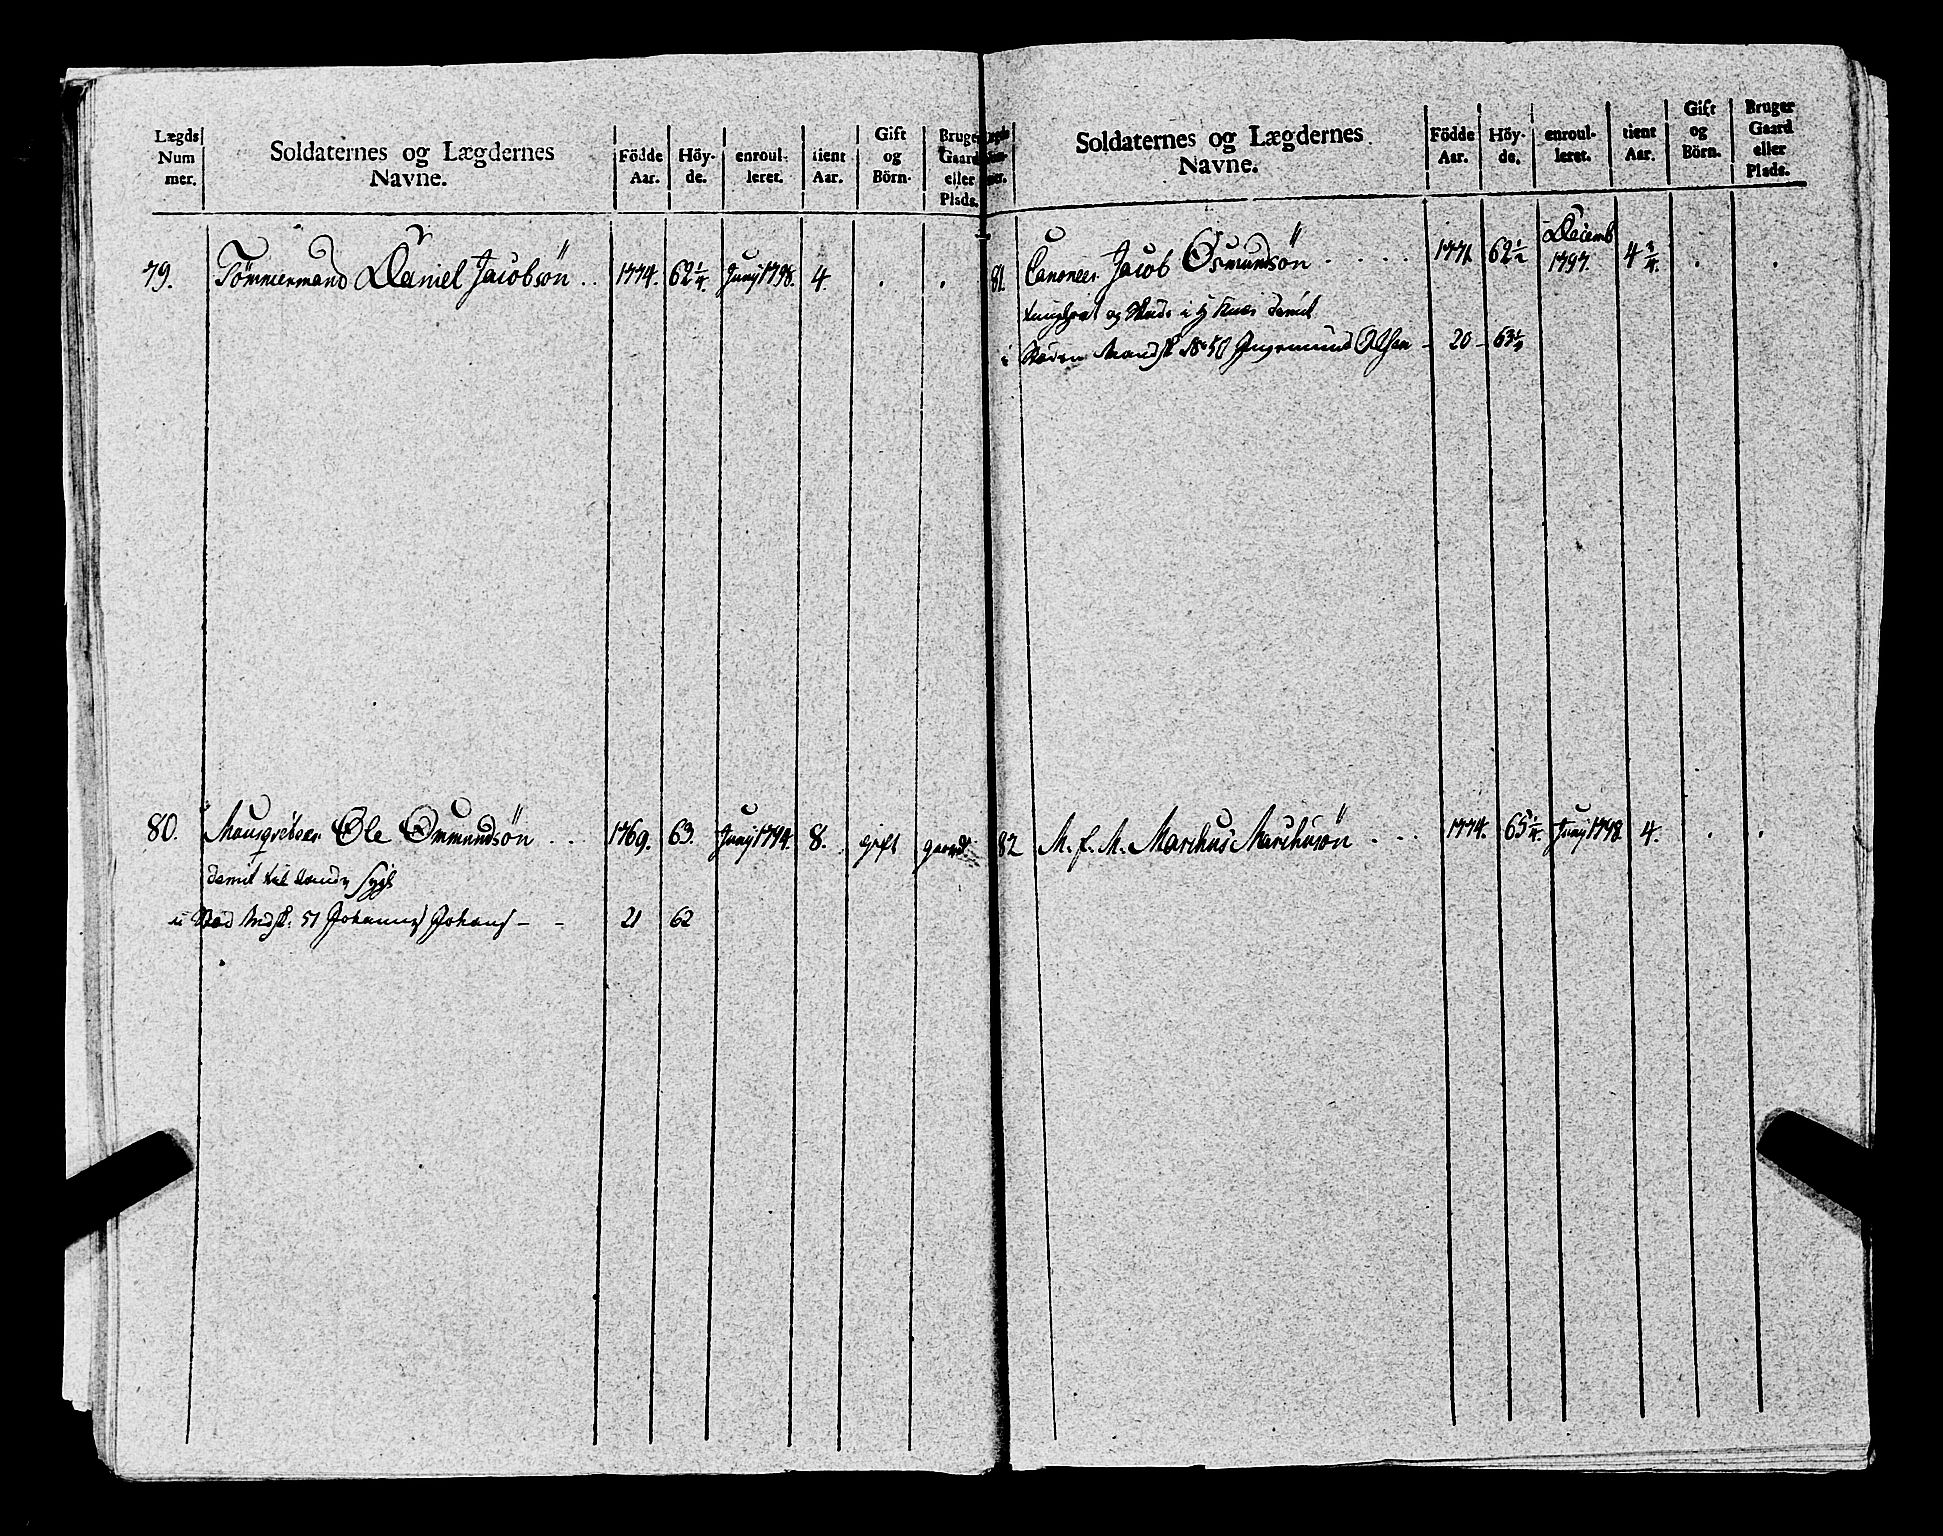 Lægds Num mer.
Soldaternes og Lægdernes Navne.
Födde Aar.
Höy- de.
enroul- leret.
tient Aar.
Gift og Börn.
Bruger Gaard eller Plads.
79. Tömmermand Daniel Jacobsön .. 1774. 62 1/4. Junj 1798. 4. . .
80. Ole Ommundsön ... 1769. 63. Junj 1794. 8. gift gaard.
51 Johannes Johans - - 21 62
Soldaternes og Lægdernes Navne.
Födde Aar.
Höy- de.
enroul- leret.
tient Aar.
Gift og Börn.
Bruger Gaard eller Plads.
Decemb
81. Canoneer Jacob Osmundsön . . . . . 1771 62 1/2 1797. 4 . .
og i Knæ
i No 50 Ingemund Olsen - 20 - 63 1/2
82 M. f. M. Marthus Marthusön . .. 1774. 65 1/4. Junj 1798. 4. . .